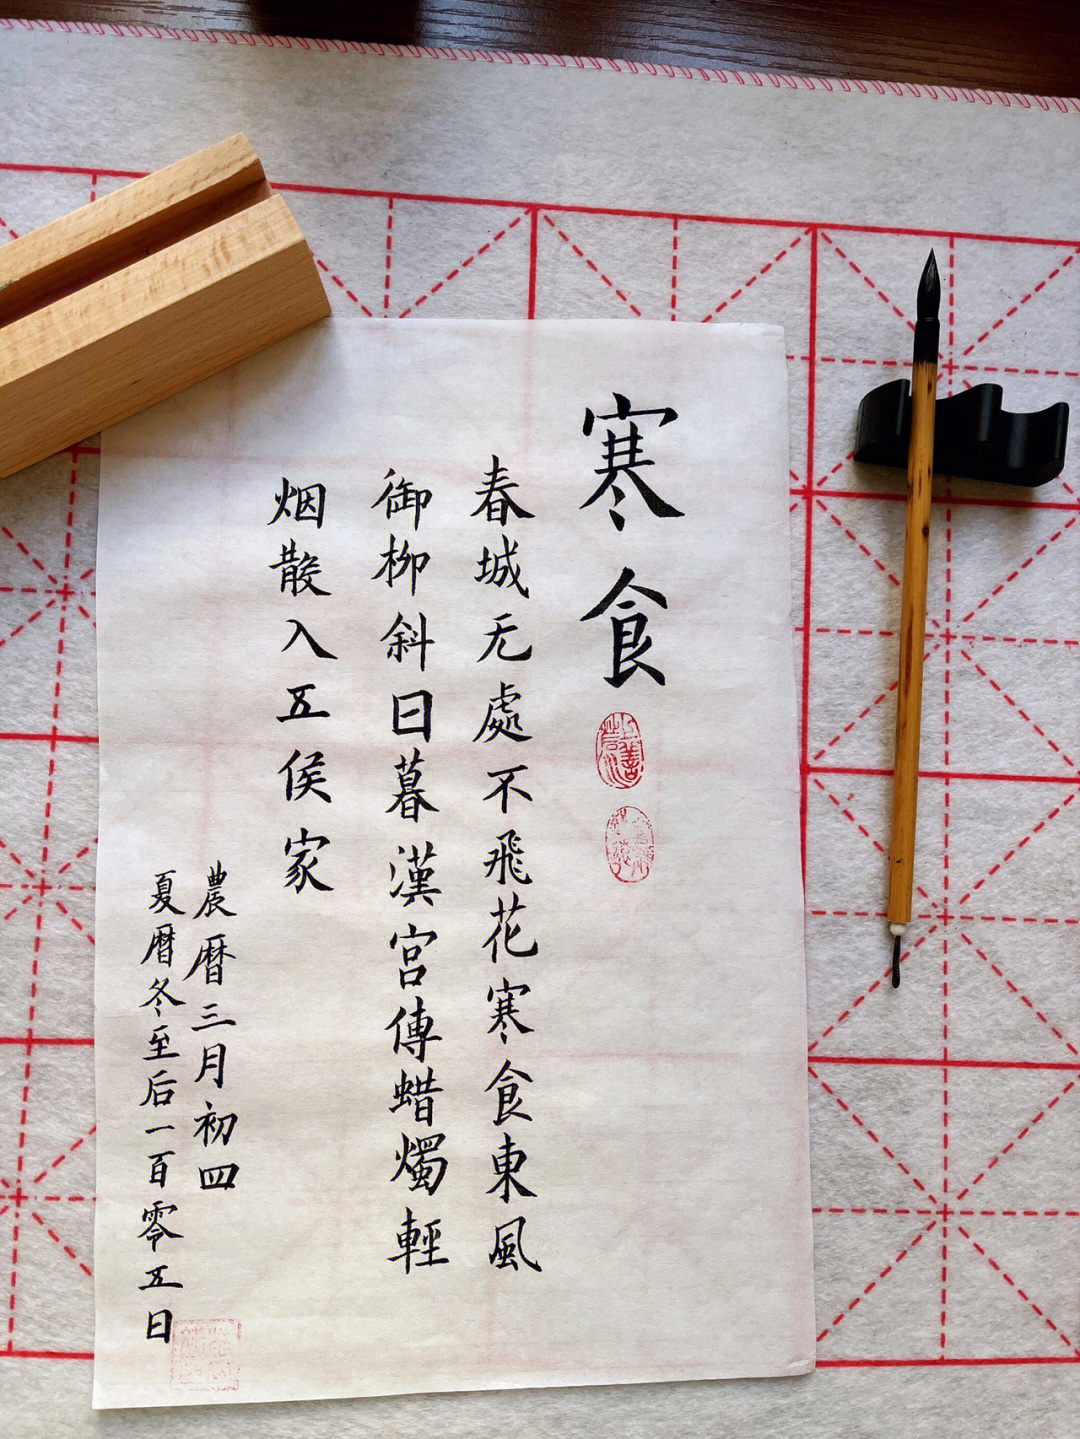 寒食
春城无處不飛花寒食東風
御柳斜日暮漢宫傳蜡燭輕
烟散入五侯家
農暦三月初四
夏暦冬至后一百零五日